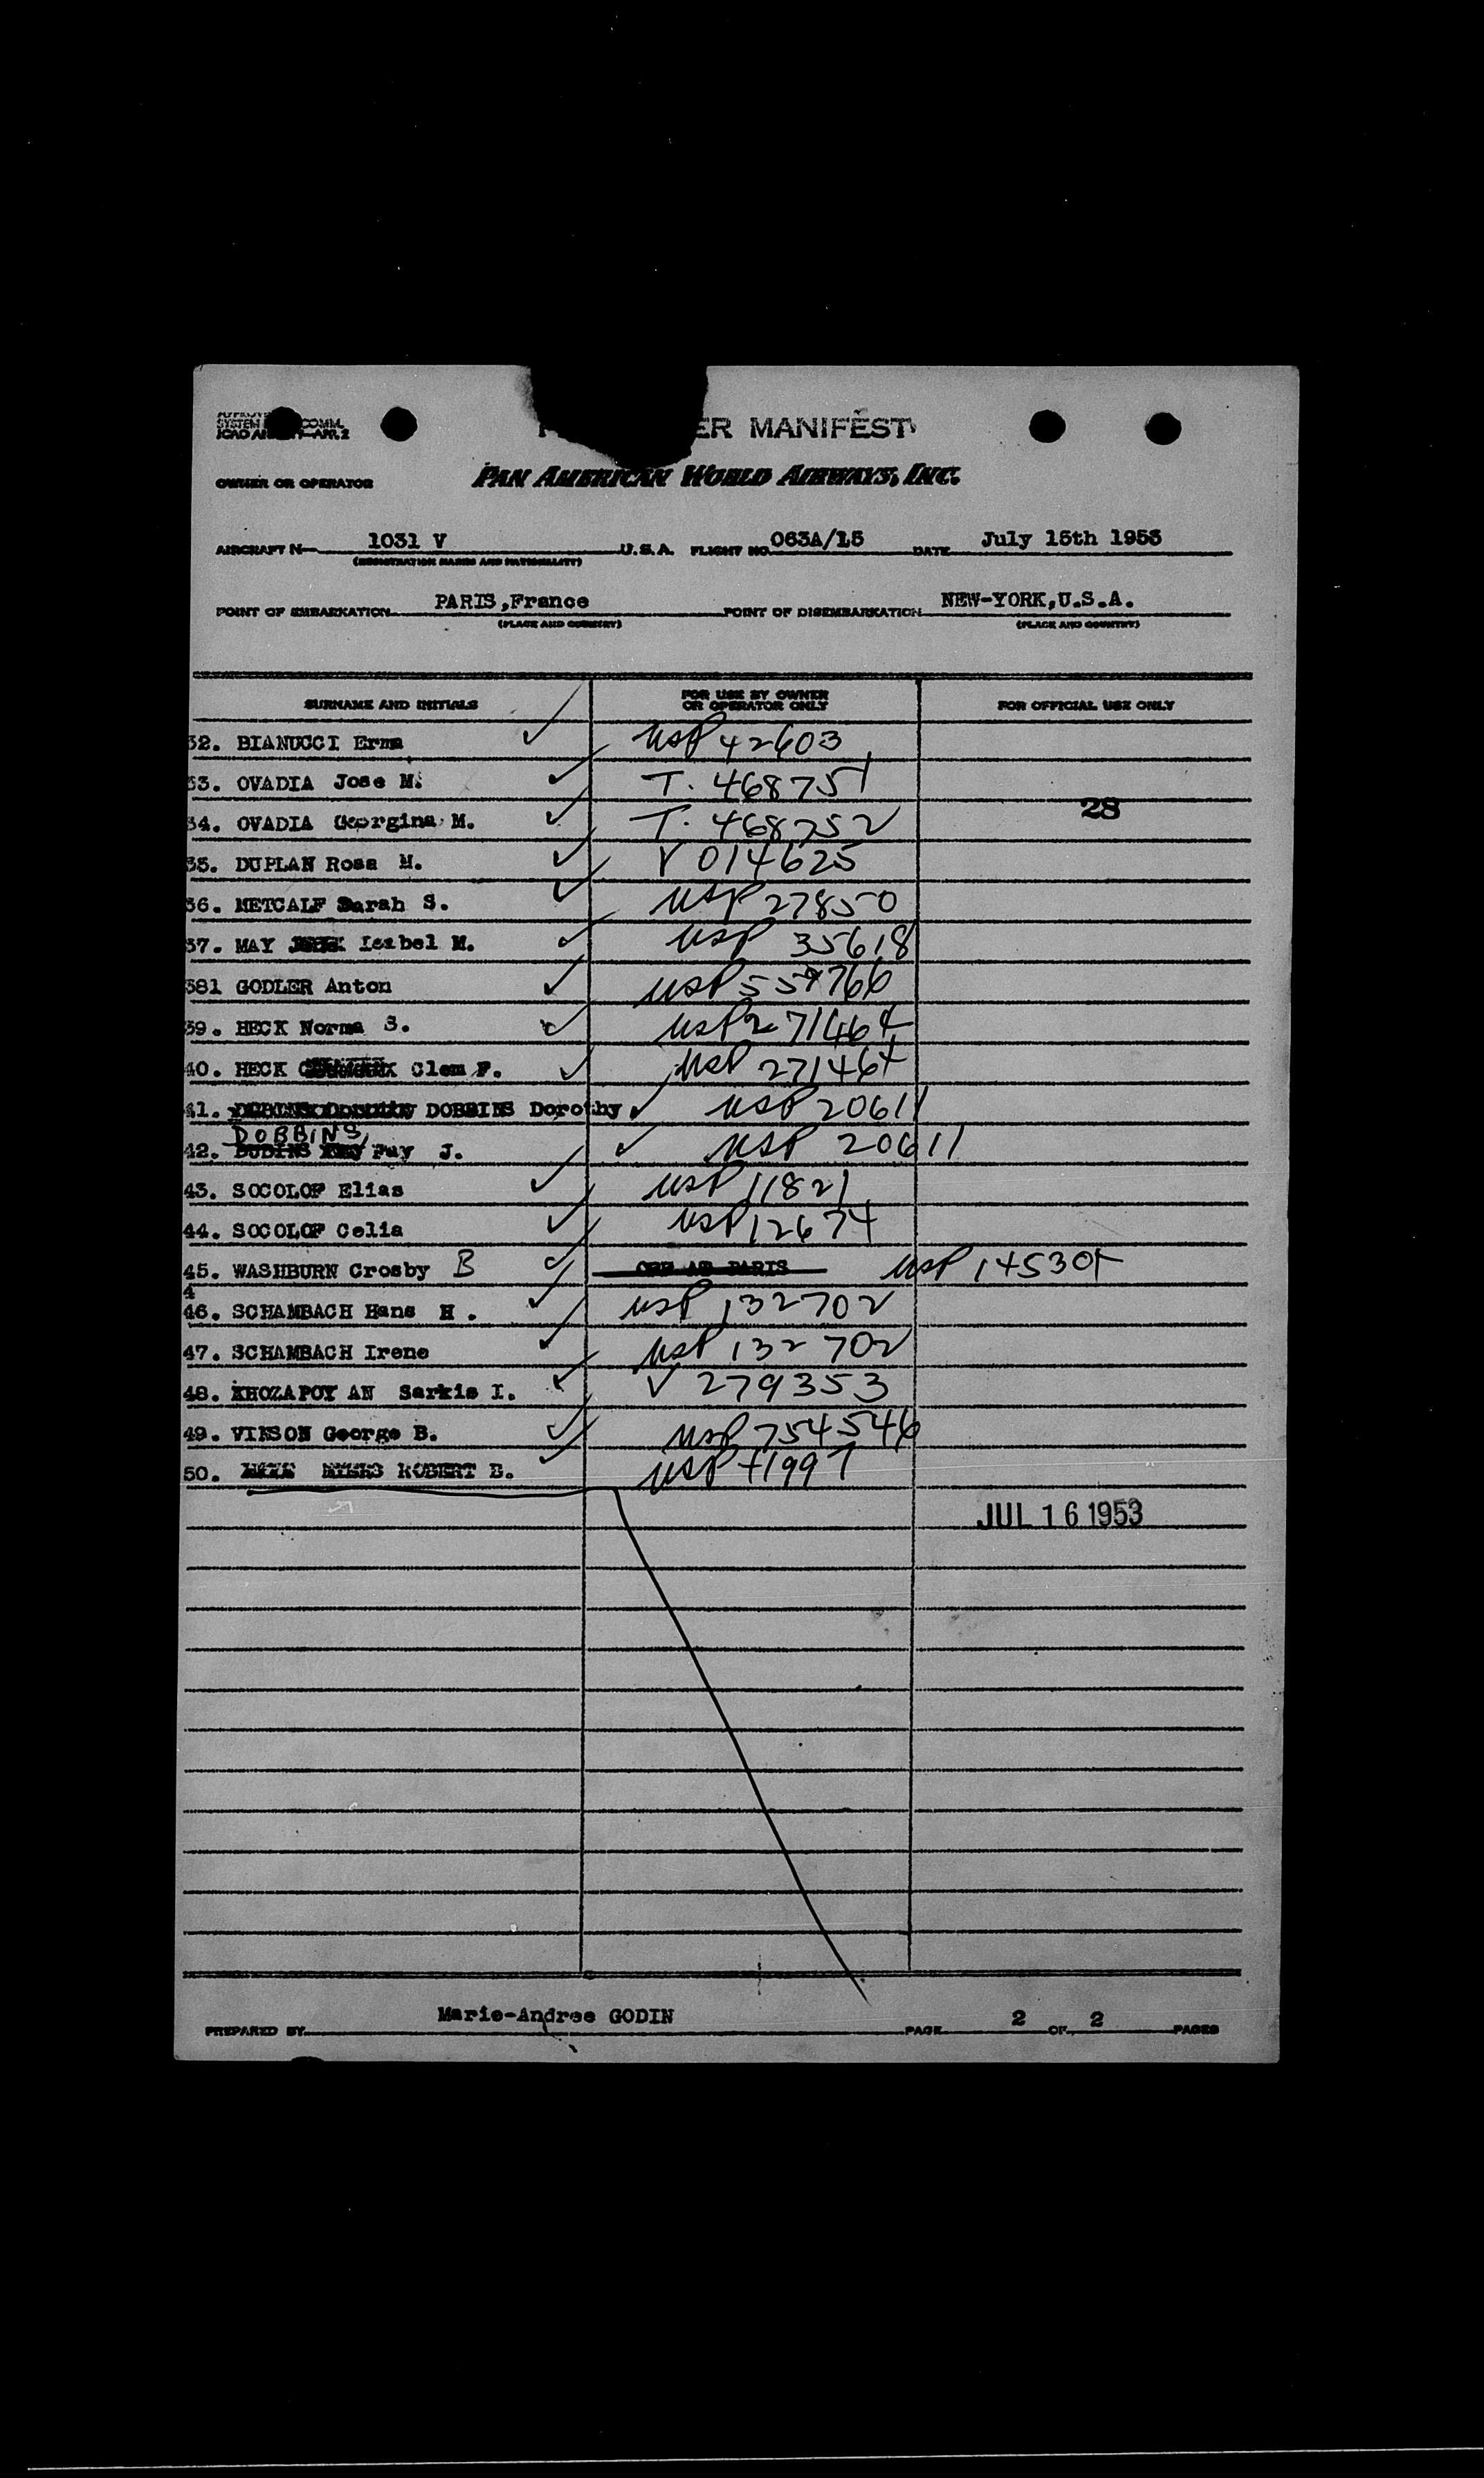 SYSTEM COMM.
ER MANIFEST
OWNER OR OPERATOR PAN AMERICAN WORLD AIRWAYS, INC.
AIRCRAFT N 1031 V U.S.A. FLIGHT NO. 063A/15 DATE July 15th 1953
(REGISTRATION MARKS AND NATIONALITY)
POINT OF EMBARKATION PARIS, France POINT OF DISEMBARKATION NEW-YORK, U.S.A.
(PLACE AND COUNTRY) (PLACE AND COUNTRY)
SURNAME AND INITIALS FOR USE BY OWNER OR OPERATOR ONLY FOR OFFICIAL USE ONLY
32. BIANUCCI Erma ✓ USP 42603
33. OVADIA Jose M. ✓ T. 468751
28
34. OVADIA Georgina M. ✓ T. 468752
35. DUPLAN Rosa M. ✓ V 014625
36. METCALF Sarah S. ✓ USP 27850
37. MAY Isabel M. ✓ USP 35618
381 GODLER Anton ✓ USP 559766
39. HECK Norma S. ✓ USP 271464
40. HECK Clem F. ✓ USP 271464
41. DOBBINS Dorothy ✓ USP 20611
DOBBINS
42. Fay J. ✓ USP 20611
43. SOCOLOF Elias ✓ USP 11821
44. SOCOLOF Celia ✓ USP 12674
45. WASHBURN Crosby B ✓ PARIS USP 145304
4
46. SCHAMBACH Hans H. ✓ USP 132702
47. SCHAMBACH Irene ✓ USP 132702
48. KHOZAPOY AN Sarkis I. ✓ V 279353
49. VINSON George B. ✓ USP 754546
50. MYERS ROBERT B. ✓ USP 41997
JUL 16 1953
PREPARED BY Marie-Andree GODIN PAGE 2 OF 2 PAGES